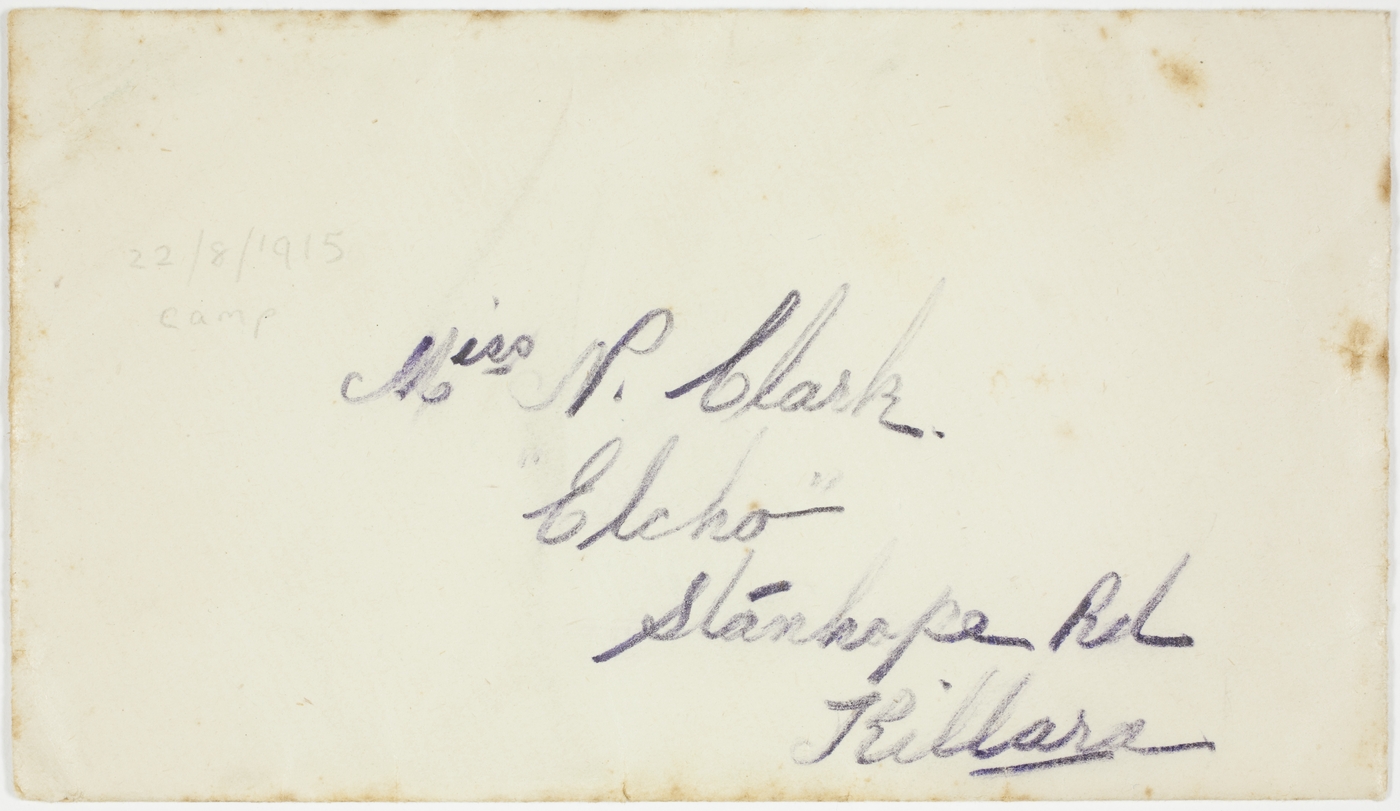 22/8/1915
camp
Miss N. Clark.
"Elcho"
Stanhope Rd
Killara